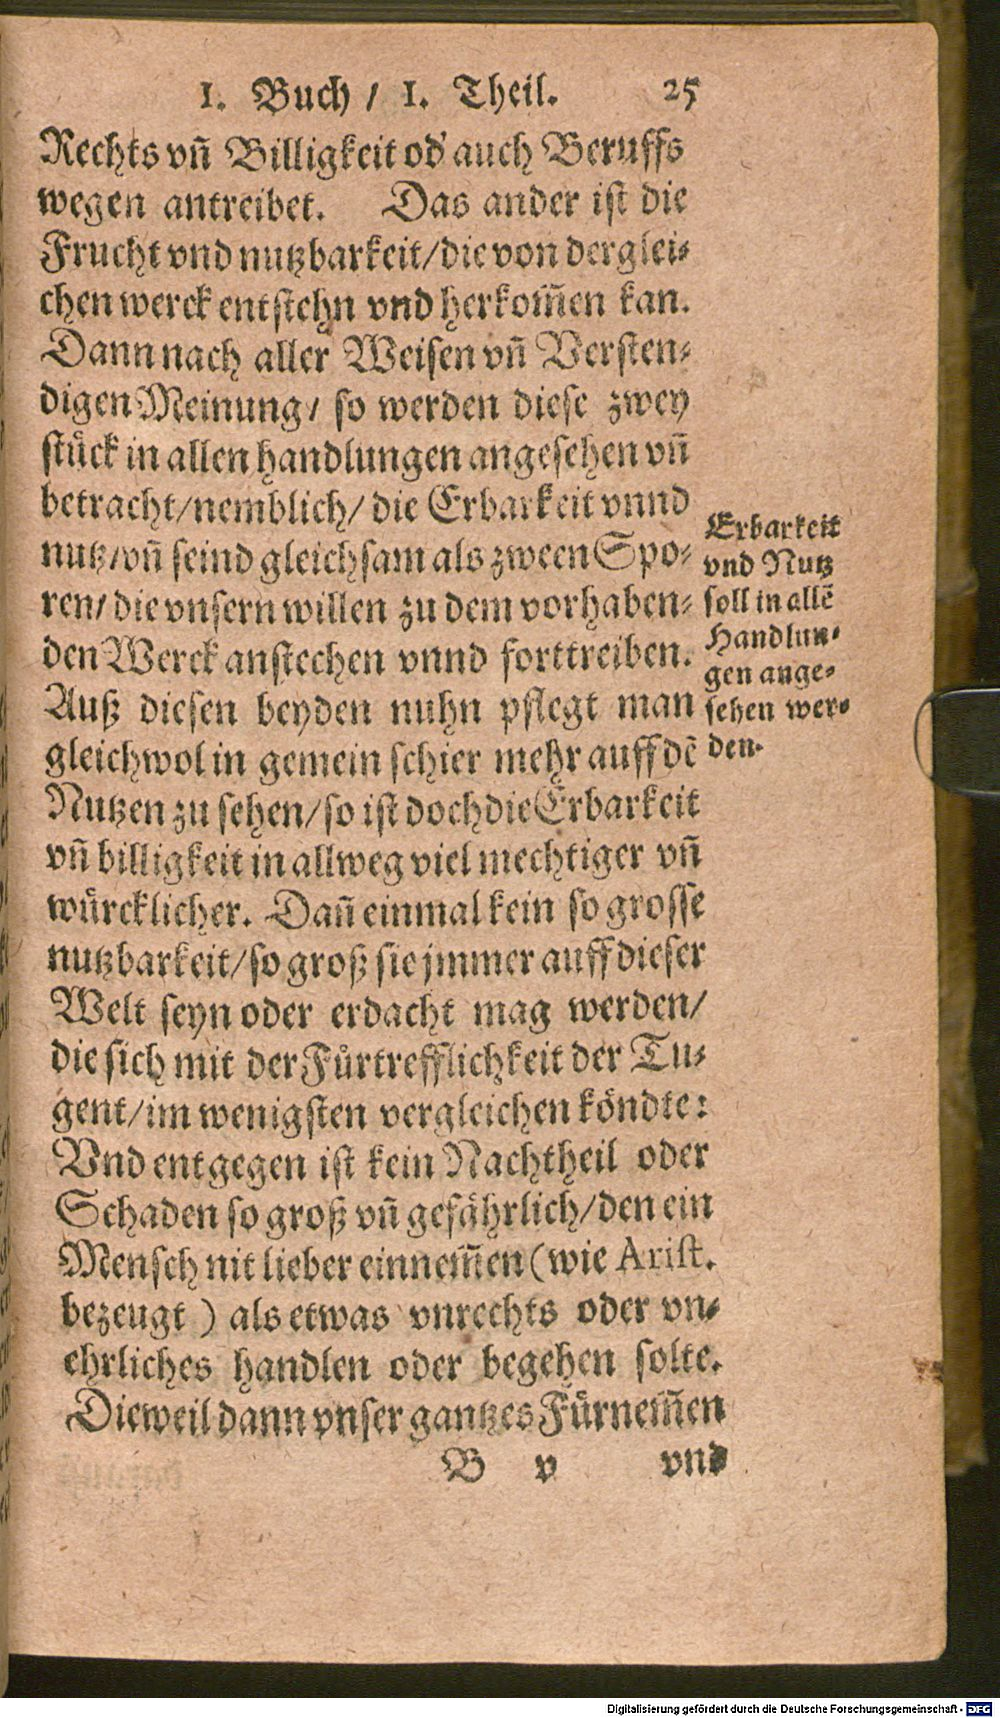 1. Buch / 1. Theil. 25
Rechts vñ Billigkeit od' auch Beruffs
wegen antreibet. Das ander ist die
Frucht vnd nutzbarkeit/die von derglei-
chen werck entstehn vnd herkom̃en kan.
Dann nach aller Weisen vñ Versten-
digen Meinung/ so werden diese zwey
stück in allen handlungen angesehen vñ
betracht/nemblich/ die Erbarkeit vnnd
nutz/vñ seind gleichsam als zween Spo-
ren/ die vnsern willen zu dem vorhaben-
den Werck anstechen vnnd forttreiben.
Auß diesen beyden nuhn pflegt man
gleichwol in gemein schier mehr auff dẽ
Nutzen zu sehen/so ist doch die Erbarkeit
vñ billigkeit in allweg viel mechtiger vñ
würcklicher. Dañ einmal kein so grosse
nutzbarkeit/so groß sie jmmer auff dieser
Welt seyn oder erdacht mag werden/
die sich mit der Fürtrefflichkeit der Tu-
gent/im wenigsten vergleichen köndte:
Vnd entgegen ist kein Nachtheil oder
Schaden so groß vñ gefährlich/den ein
Mensch nit lieber einnem̃en (wie Arist.
bezeugt ) als etwas vnrechts oder vn-
ehrliches handlen oder begehen solte.
Dieweil dann vnser gantzes Fürnem̃en
B v vnd
Erbarkeit
vnd Nutz
soll in allẽ
Handlun-
gen ange-
sehen wer-
den.
Digitalisierung gefördert durch die Deutsche Forschungsgemeinschaft - DFG